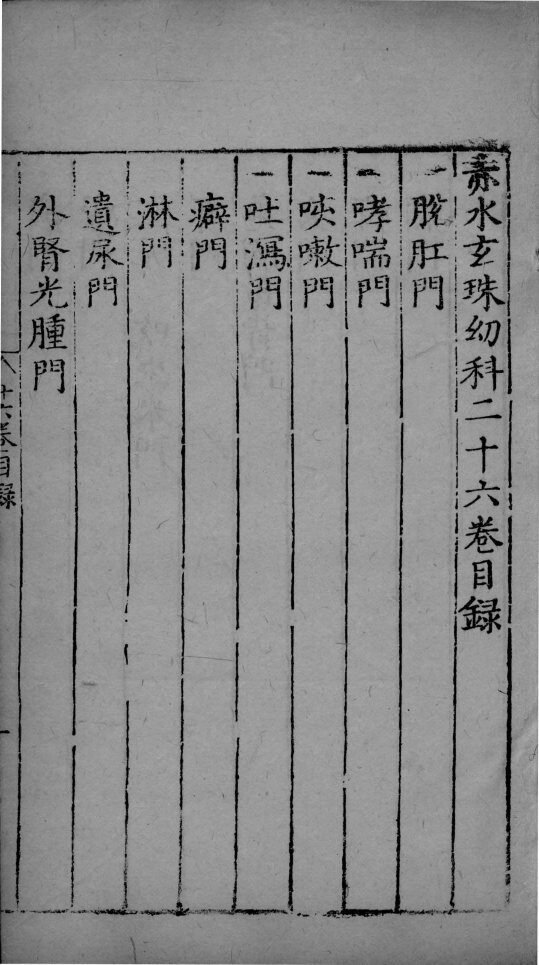 赤水玄珠幼科二十六卷目録
一 脫肛門
一 哮喘門
一 咳嗽門
一 吐瀉門
癖門
淋門
遺尿門
外腎光腫門
廿六卷目録
一